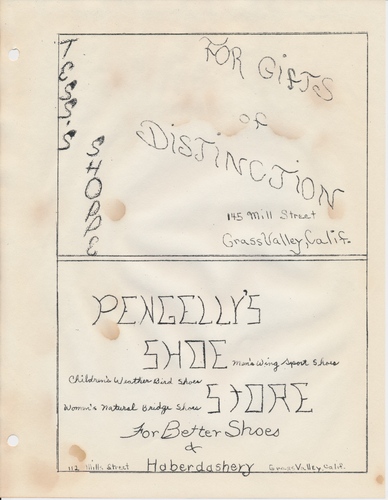 TESS'S
SHOPPE
FOR GifTS
of
DISTINCTION
145 Mill Street
Grass Valley, Calif.
PENGELLY'S
SHOE
Men's Wing Sport Shoes
Children's Weather Bird Shoes
STORE
Women's Natural Bridge Shoes
For Better Shoes
&
Haberdashery
112 Mill Street
Grass Valley, Calif.